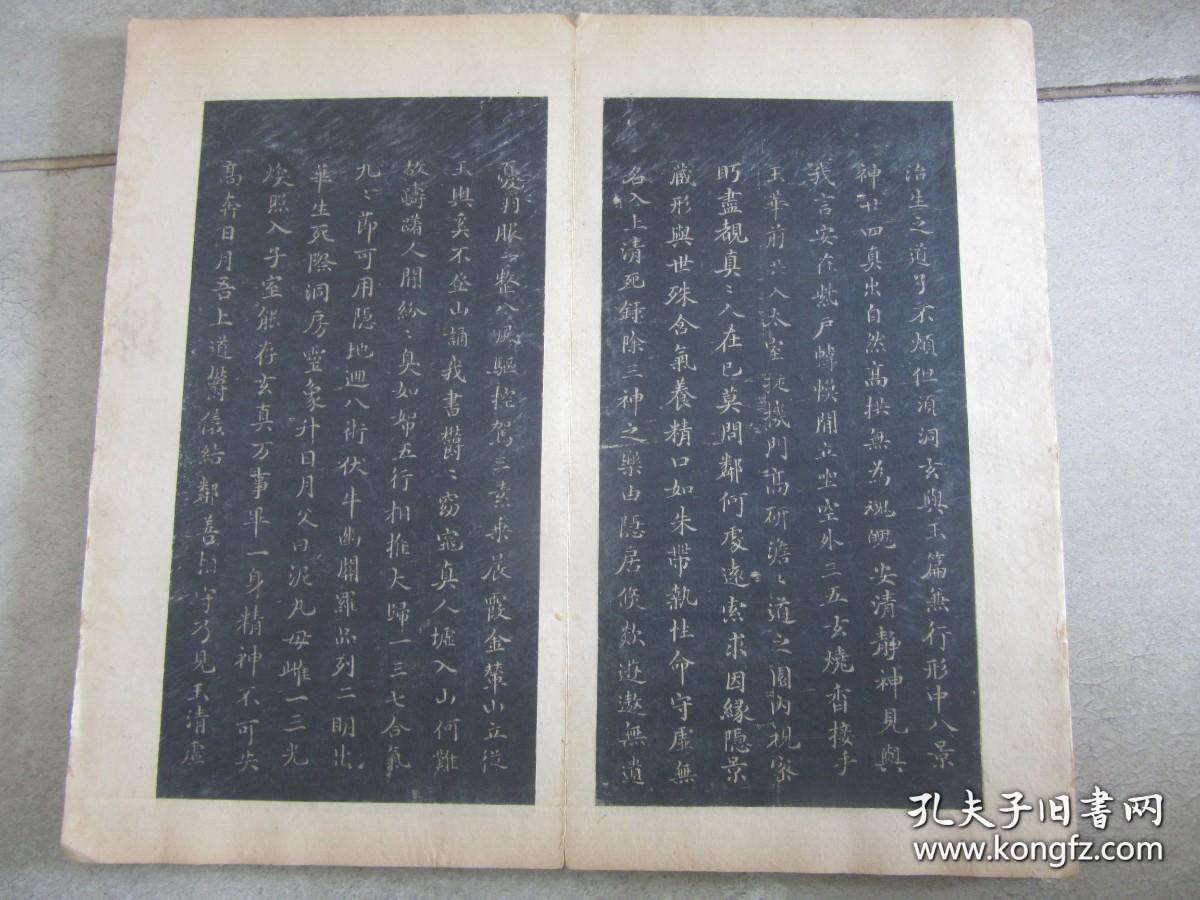 治生之道了不煩但湏洞玄與玉篇無行形中八景
神廿四真出自然髙拱無為魂魄安清静神見與
我言安在紫戸幃幙閒立坐空外三五玄燒香接手
玉華前共入太室璇璣門髙研澹〻道之園内視密
眄盡覩真〻人在己莫問鄰何處遠索求因緣隠景
藏形與世殊含氣養精口如朱帶執性命守虚無
名入上清死録除三神之樂由隠居倐欻遊遨無遺
憂羽服一整八風驅控駕三素乗晨霞金輦山立從
玉輿奚不登山誦我書欝〻窈窕真人墟入山何難
故躊躇人閒紛〻臭如帤五行相推大歸一三七合氣
九〻節可用隠地迴八術伏牛幽闕羅品列二明出
華生死際洞房靈象升日月父曰泥丸母雌一三光
煥照入子室能存玄真万事畢一身精神不可失
髙奔日月吾上道欝儀結鄰善相守乃見玉清虚
孔夫子旧书网
www.kongfz.com